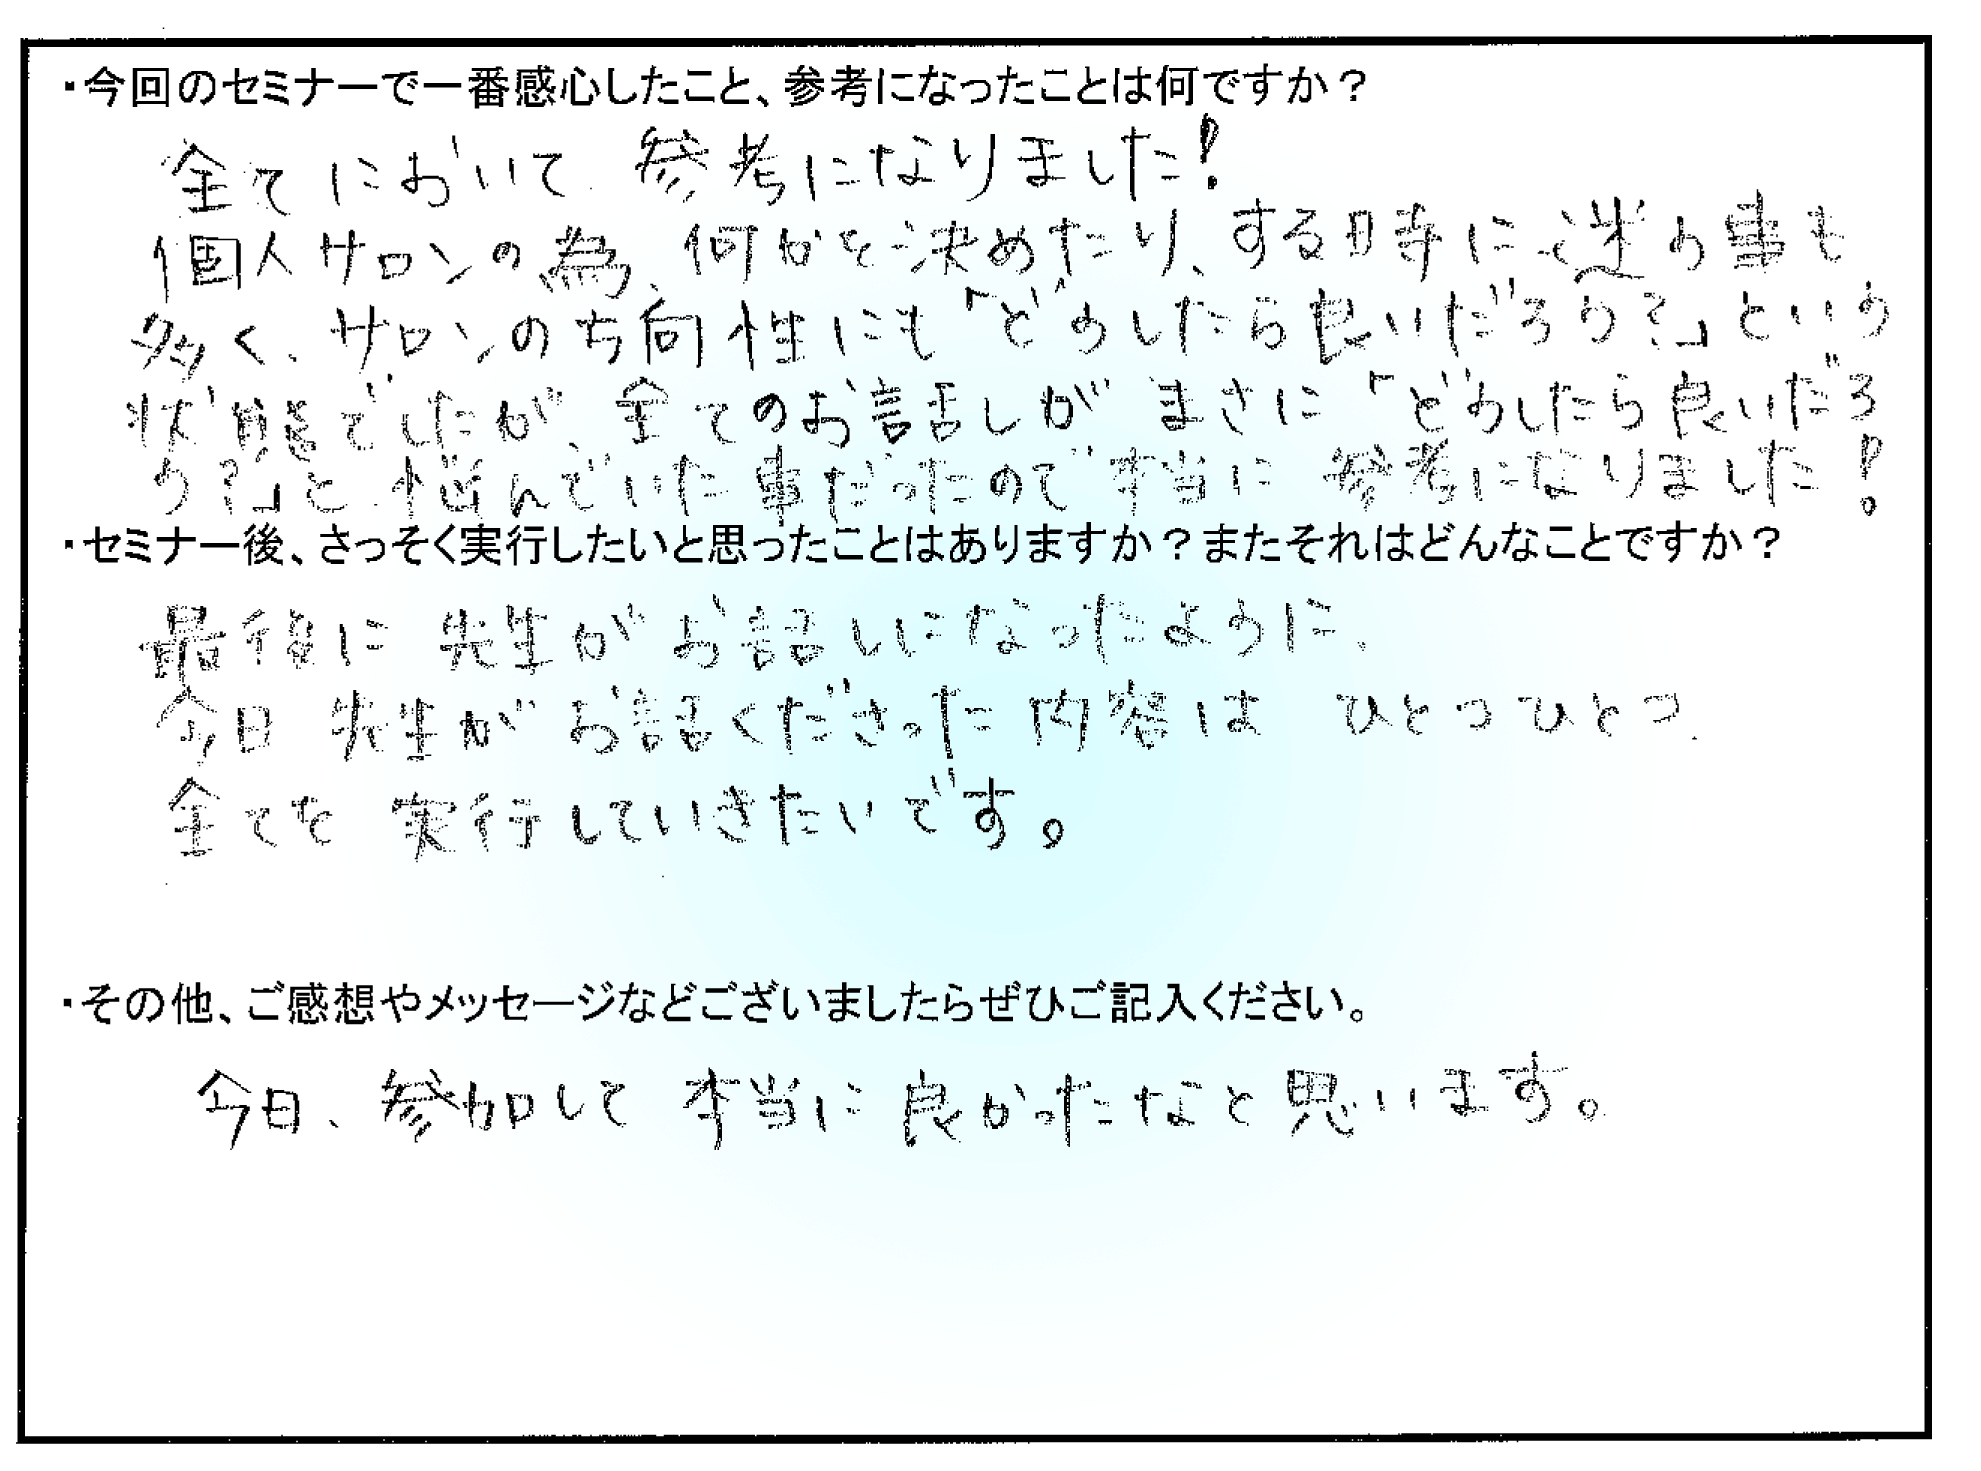 ・今回のセミナーで一番感心したこと、参考になったことは何ですか？
全てにおいて、参考になりました！
個人サロンの為、何かを決めたり、する時に迷う事も
多く、サロンの方向性にも「どうしたら良いだろう？」という
状態でしたが、全てのお話しがまさに「どうしたら良いだろ
う？」と悩んでいた事だったので本当に参考になりました！
・セミナー後、さっそく実行したいと思ったことはありますか？またそれはどんなことですか？
最後に先生がお話しになったように、
今日先生がお話くださった内容はひとつひとつ、
全てを実行していきたいです。
・その他、ご感想やメッセージなどございましたらぜひご記入ください。
今日、参加して本当に良かったなと思います。